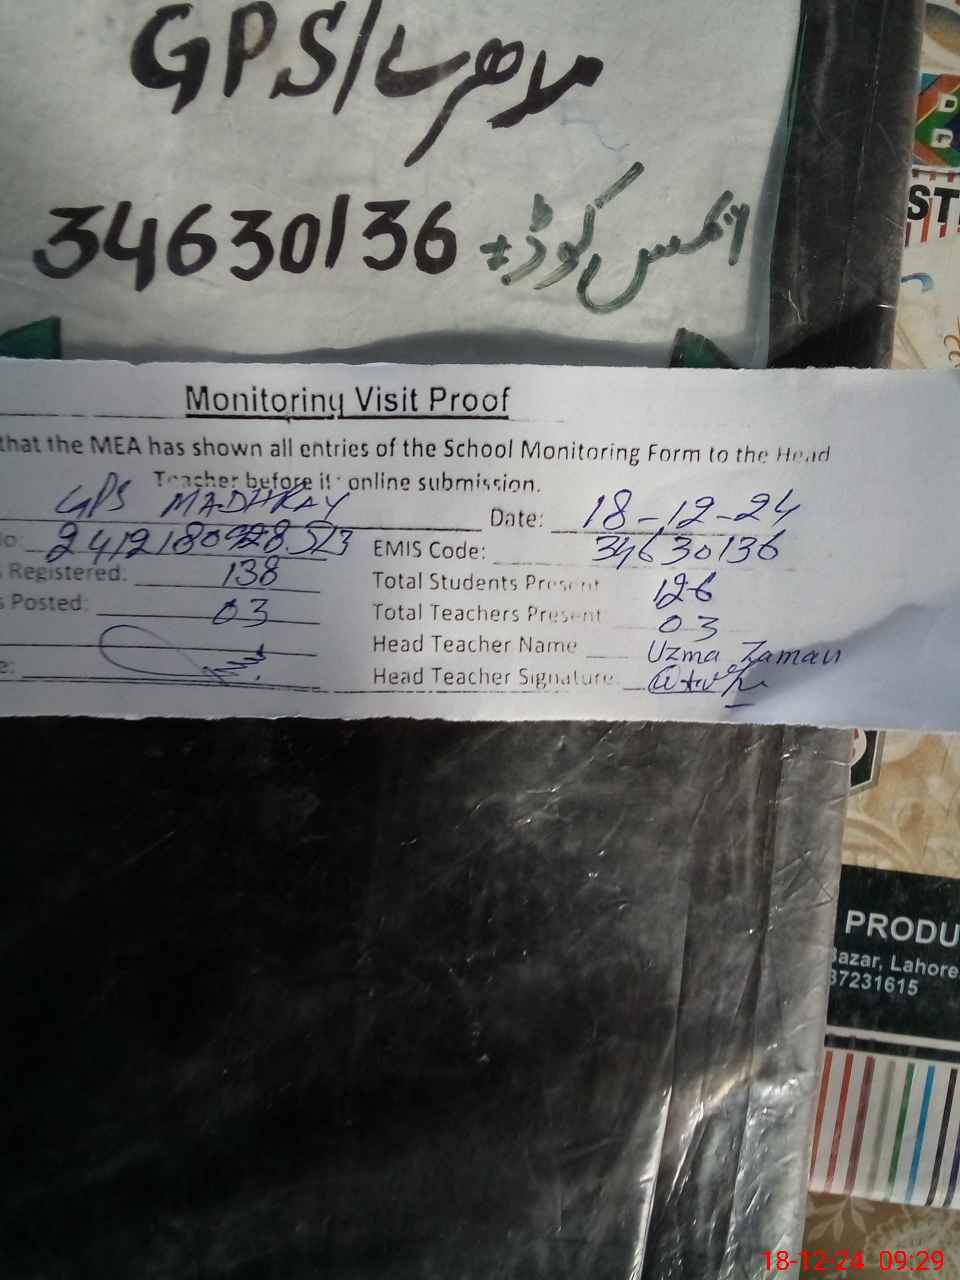 GPS/مدھرے
34630136 ایمس کوڈ:
ST
Monitoring Visit Proof
that the MEA has shown all entries of the School Monitoring Form to the Head
Teacher before it: online submission.
GPS MADHRAY Date: 18-12-24
No: EMIS Code: 34630136
s Registered: 138 Total Students Present 126
s Posted: 03 Total Teachers Present 03
Head Teacher Name Uzma Zaman
e: Head Teacher Signature:
PRODU
Bazar, Lahore
37231615
18-12-24 09:29